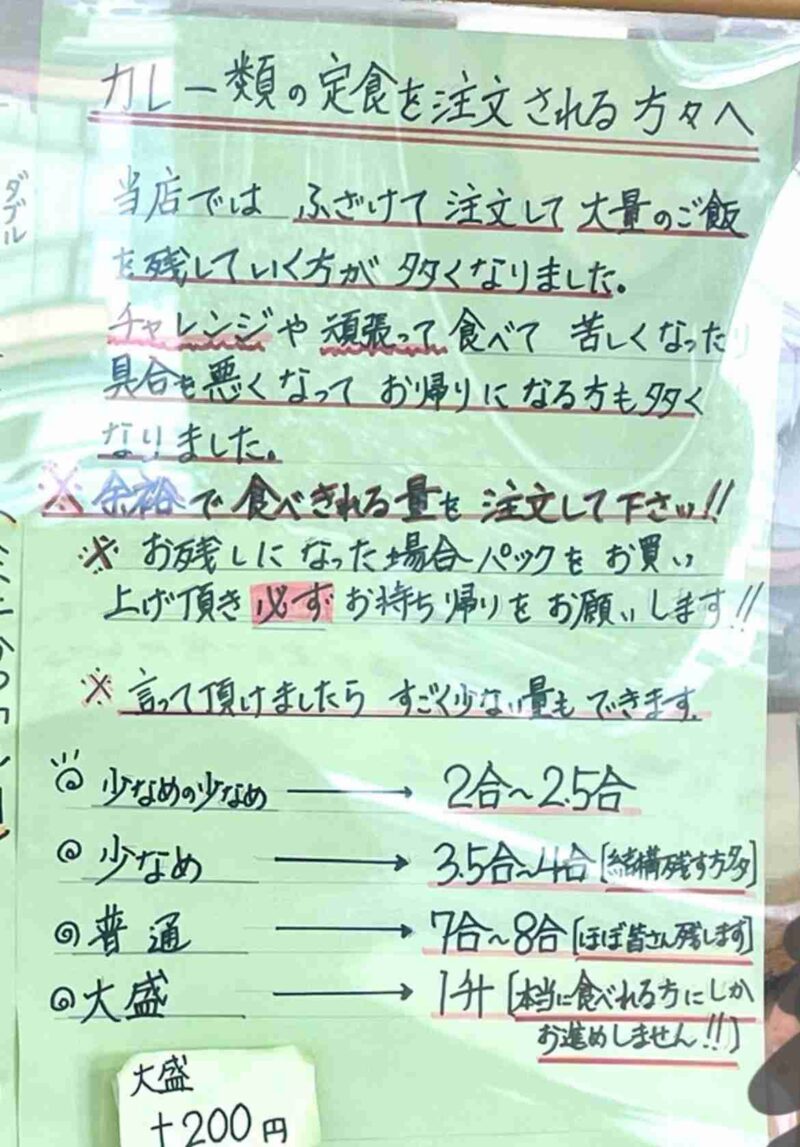 カレー類の定食を注文される方々へ
当店では ふざけて注文して大量のご飯
を残していく方が多くなりました。
チャレンジや頑張って食べて苦しくなったり
具合も悪くなってお帰りになる方も多く
なりました。
※余裕で食べきれる量を注文して下さい!!
※お残しになった場合パックをお買い
上げ頂き必ずお持ち帰りをお願いします!!
※言って頂けましたらすごく少ない量もできます。
◎少なめの少なめ → 2合〜2.5合
◎少なめ → 3.5合〜4合[結構残す方多]
◎普通 → 7合〜8合[ほぼ皆さん残します]
◎大盛 → 1升[本当に食べれる方にしか
お進めしません!!]
大盛
+200円
ダブル